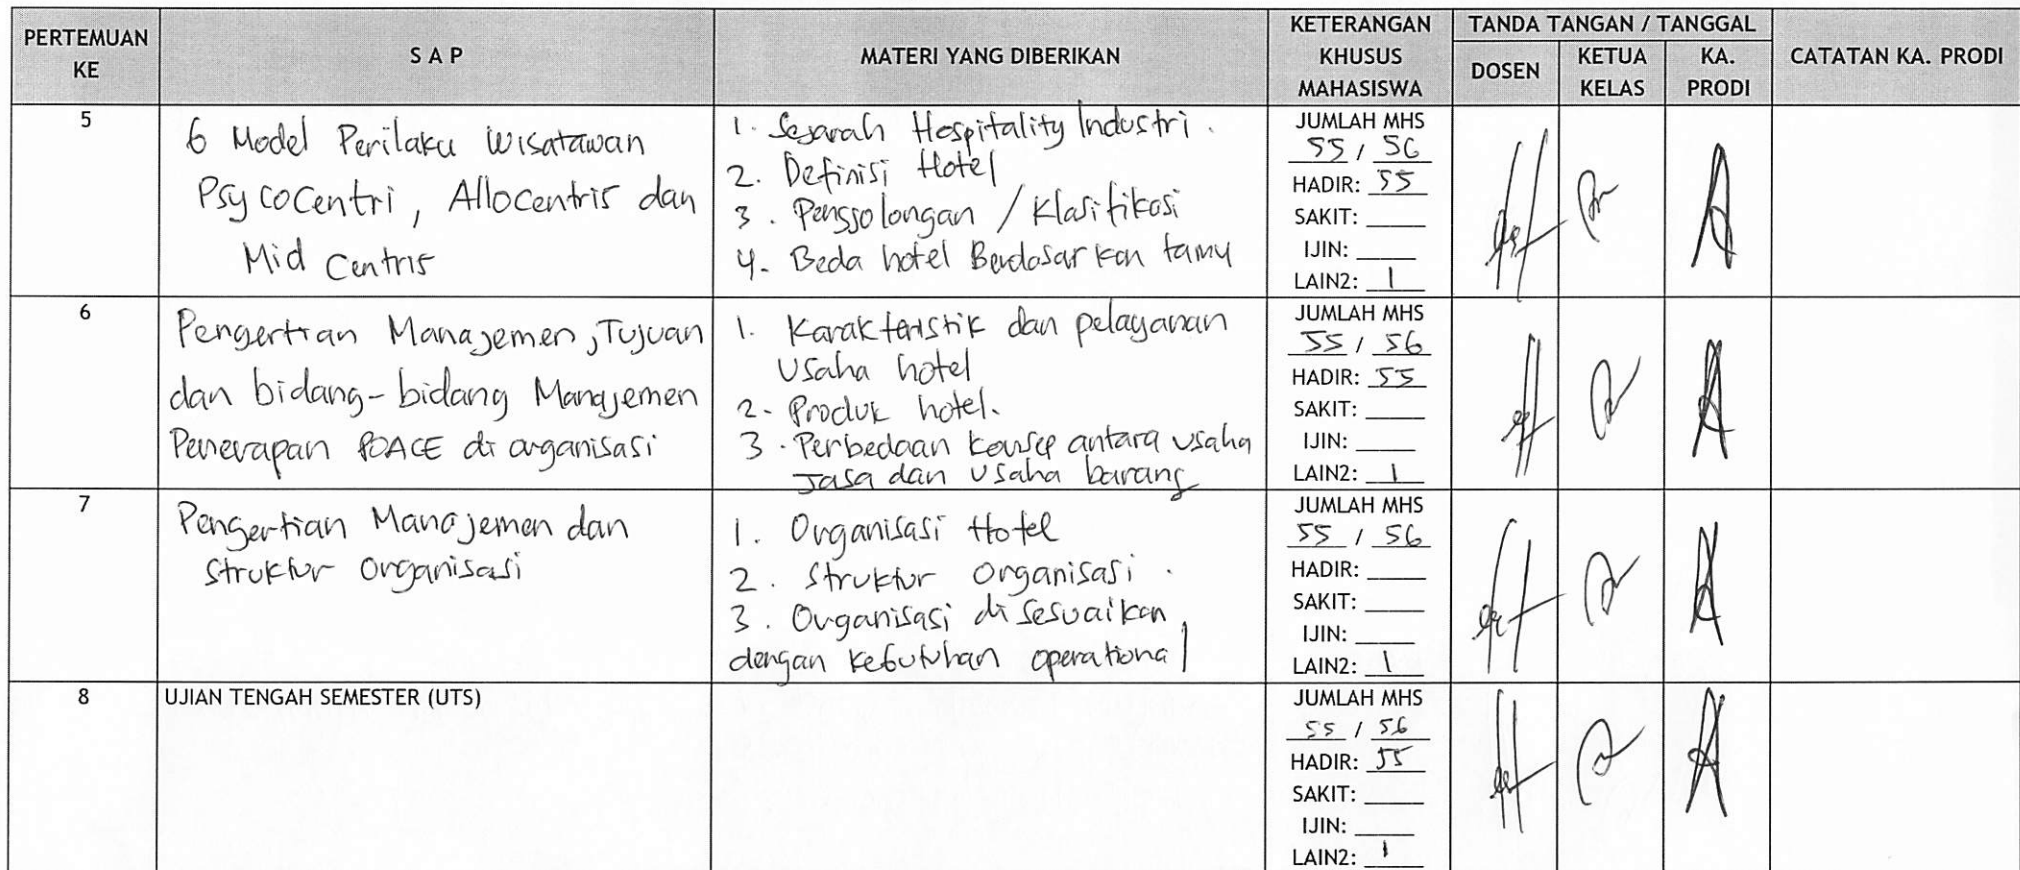 PERTEMUAN KE
S A P
MATERI YANG DIBERIKAN
KETERANGAN KHUSUS MAHASISWA
TANDA TANGAN / TANGGAL
DOSEN
KETUA KELAS
KA. PRODI
CATATAN KA. PRODI
5
6 Model Perilaku Wisatawan
Psycocentri, Allocentris dan
Mid Centris
1. Sejarah Hospitality Industri.
2. Definisi Hotel
3. Penggolongan / Klasifikasi
4. Beda hotel Berdasarkan tamu
JUMLAH MHS
55 / 56
HADIR: 55
SAKIT:
IJIN:
LAIN2: 1
6
Pengertian Manajemen, Tujuan
dan bidang-bidang Manajemen
Penerapan POACE di organisasi
1. Karakteristik dan pelayanan
usaha hotel
2. Produk hotel.
3. Perbedaan konsep antara usaha
Jasa dan usaha barang
JUMLAH MHS
55 / 56
HADIR: 55
SAKIT:
IJIN:
LAIN2: 1
7
Pengertian Manajemen dan
Struktur Organisasi
1. Organisasi Hotel
2. Struktur Organisasi.
3. Organisasi disesuaikan
dengan kebutuhan operational
JUMLAH MHS
55 / 56
HADIR:
SAKIT:
IJIN:
LAIN2: 1
8
UJIAN TENGAH SEMESTER (UTS)
JUMLAH MHS
55 / 56
HADIR: 55
SAKIT:
IJIN:
LAIN2: 1